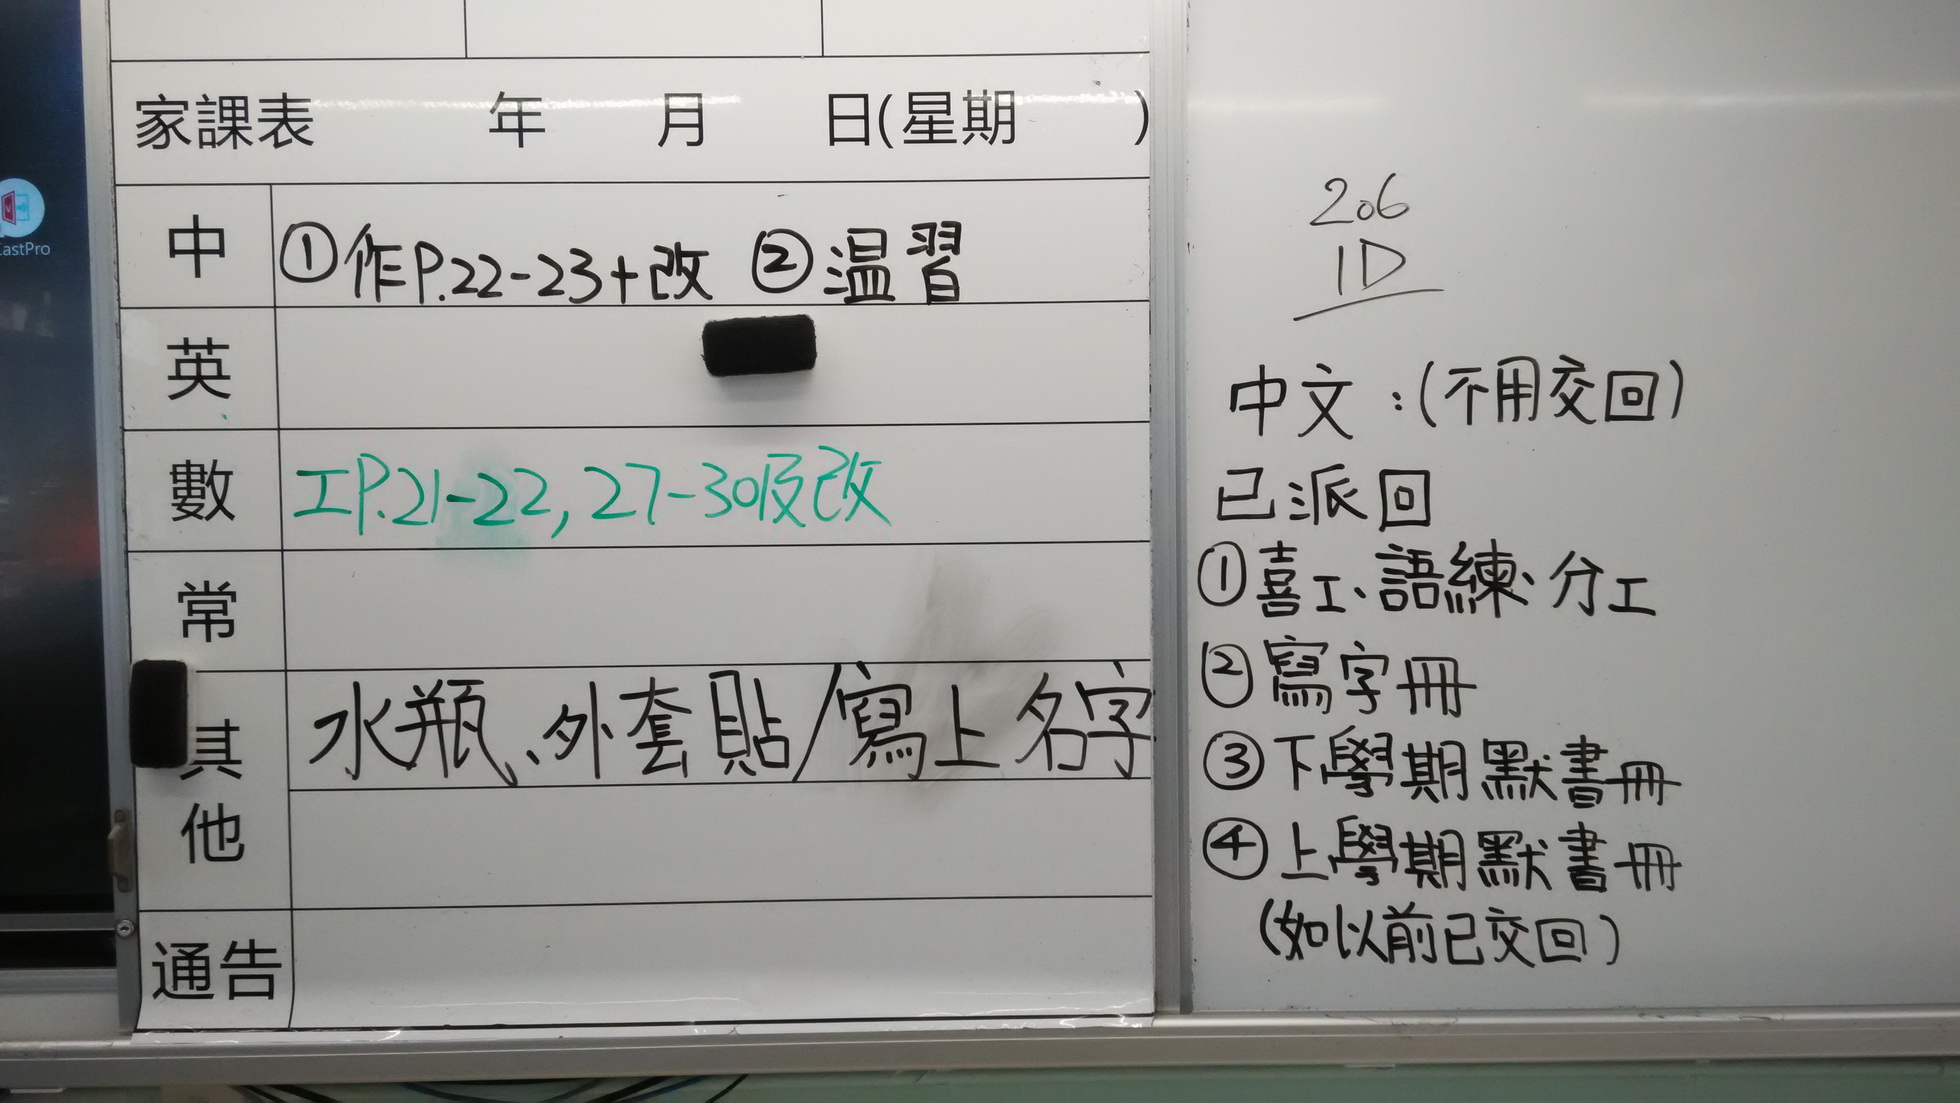 家課表 年 月 日(星期 )
中 ①作P.22-23+改 ②温習
英
數 工P.21-22, 27-30及改
常
其他 水瓶、外套貼/寫上名字
通告
castPro
206
1D
中文:(不用交回)
已派回
①喜工、語練、分工
②寫字冊
③下學期默書冊
④上學期默書冊
(如以前已交回)